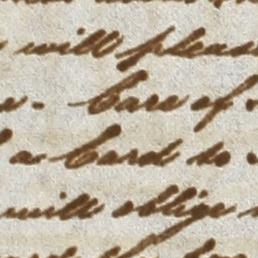 will pleas
Care of
a Card to
will oblige